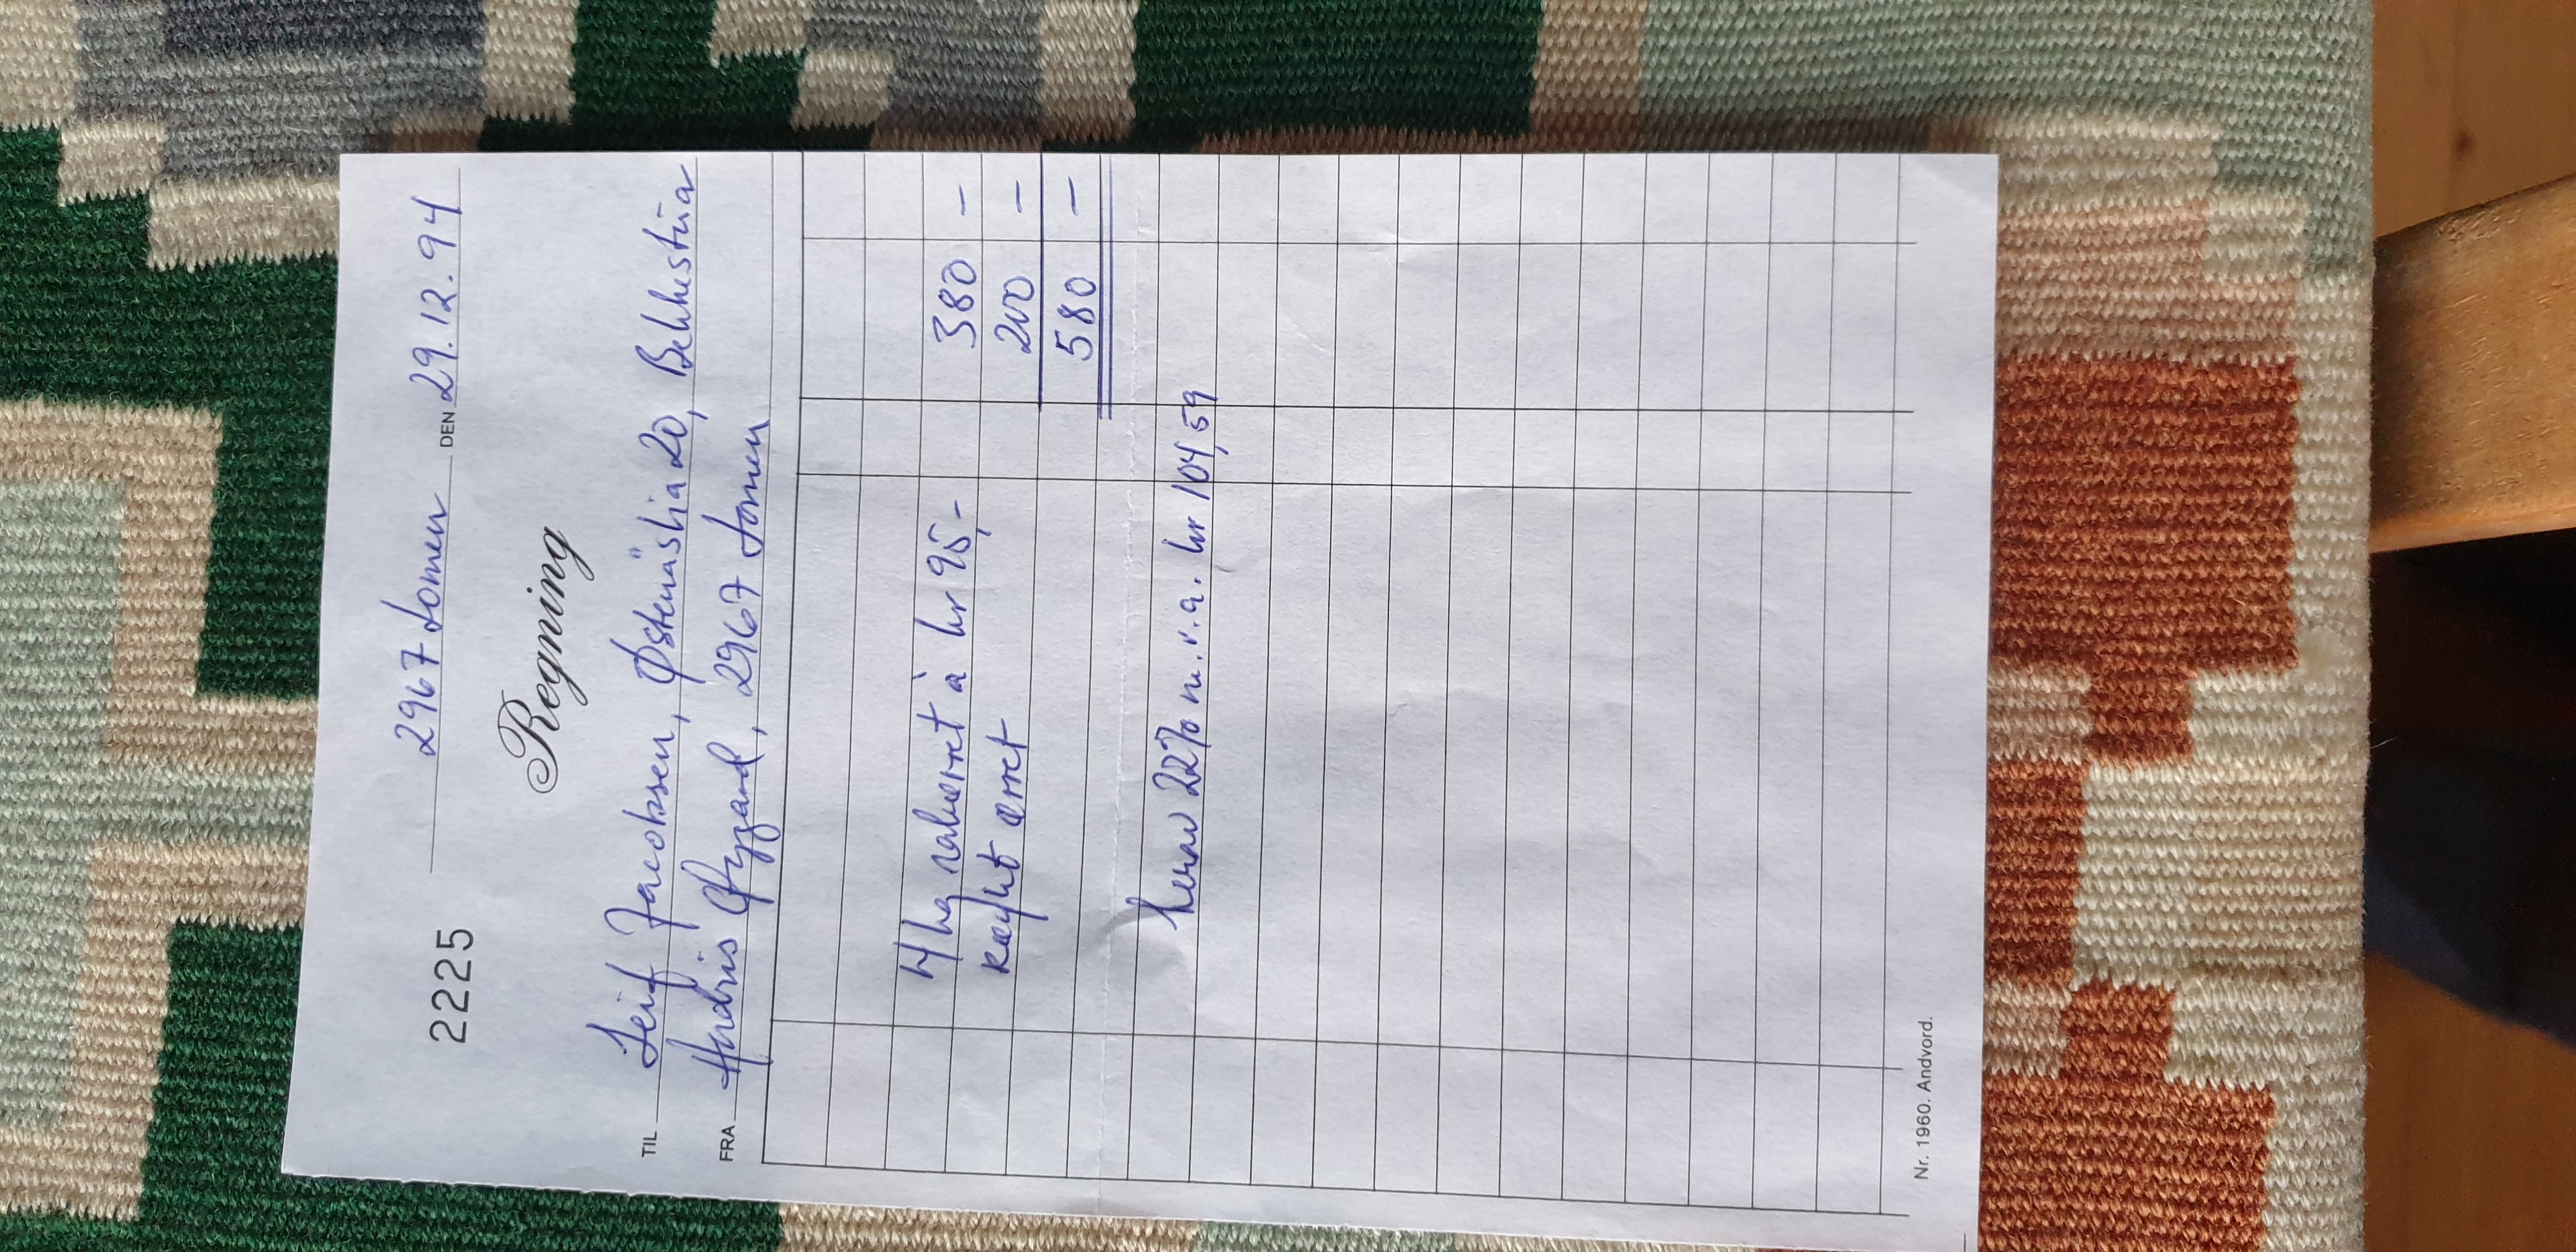 2225 2967 Lomen DEN 29.12.94
Regning
TIL Leif Jacobsen, Østenåslia 20, Bekkestua
FRA Andris Øygard, 2967 Lomen
4 kg rakørret à kr 95,- 380 -
røykt ørret 200 -
580 -
herav 22% m.v.a. kr 104,59
Nr. 1960. Andvord.